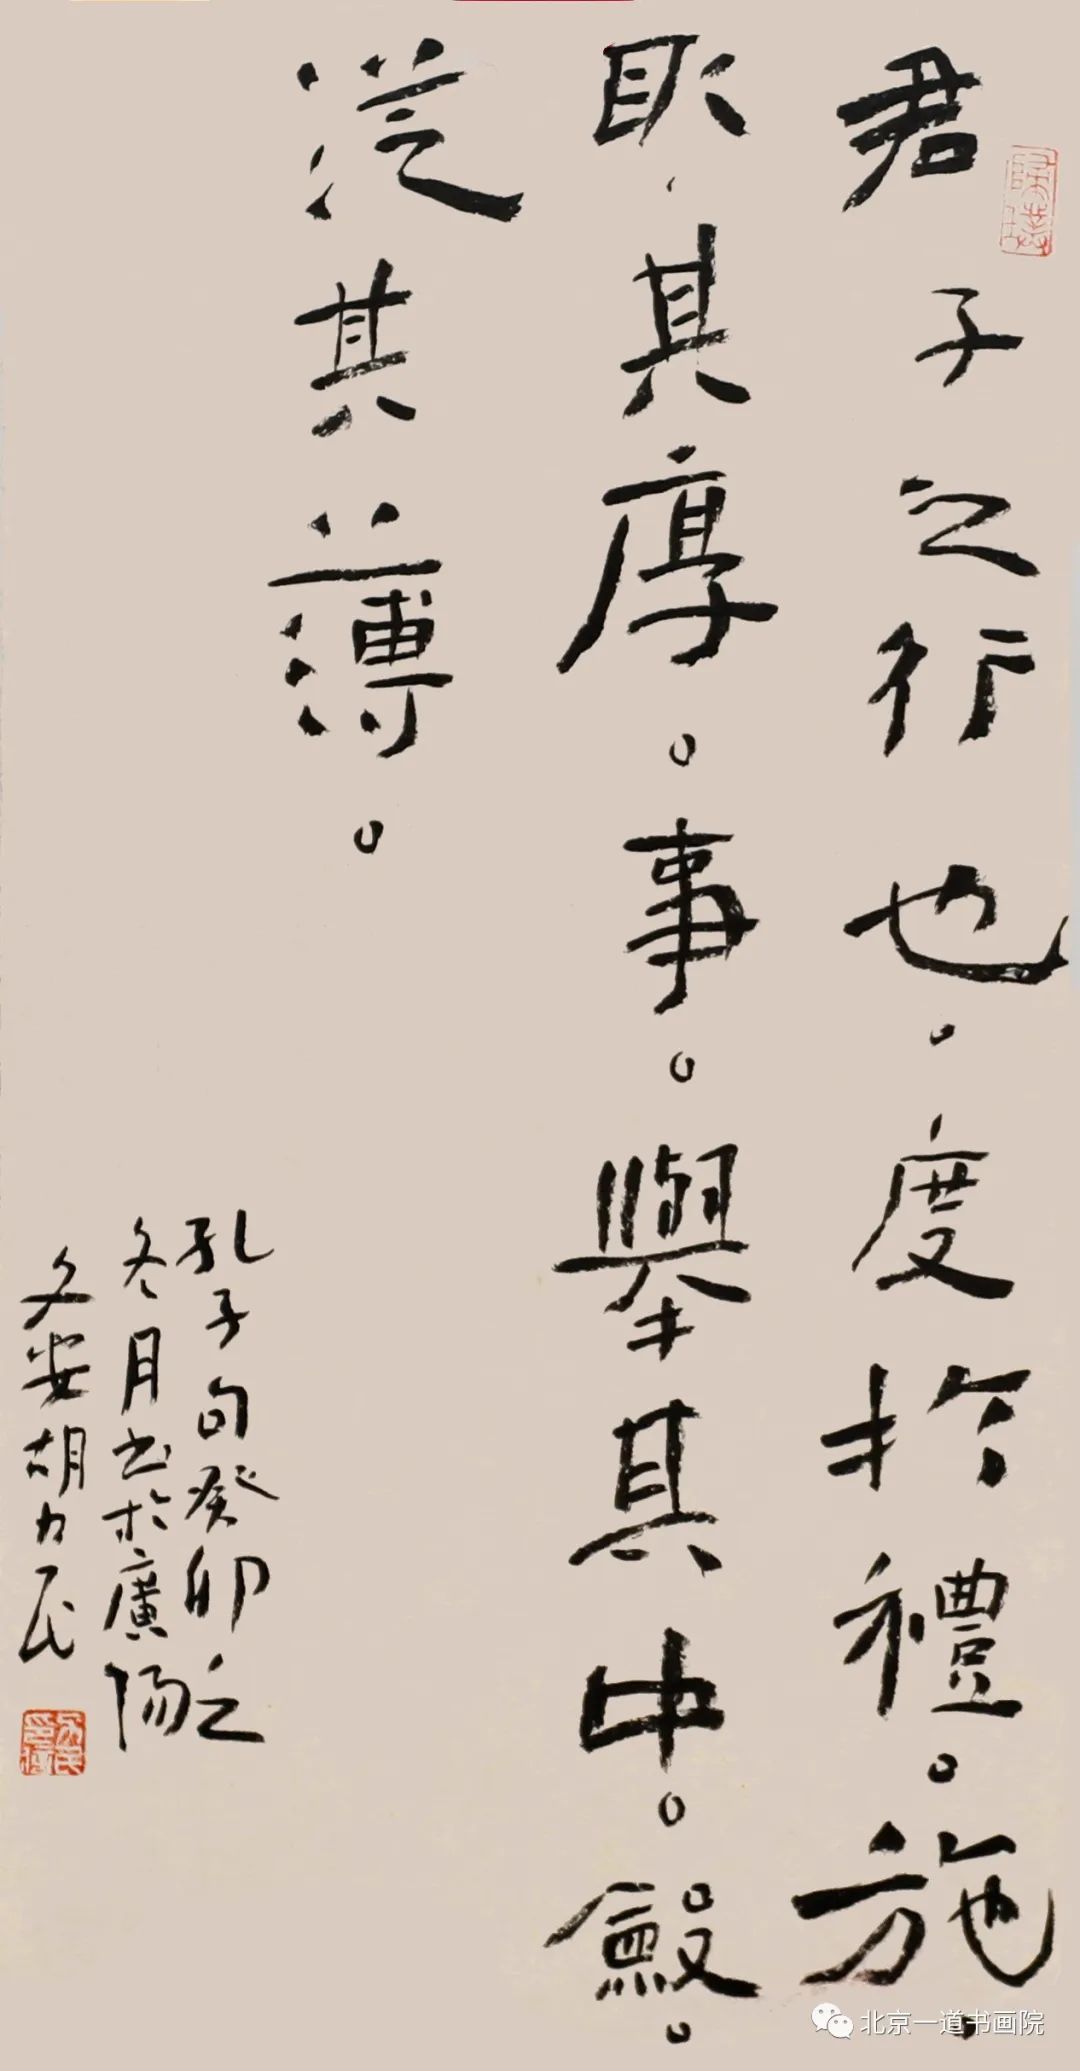 君子之行也。度於禮。施。
取其厚。事。舉其中。斂。
從其薄。
孔子句癸卯之
冬月书於廣陽
文安胡力民
北京一道书画院